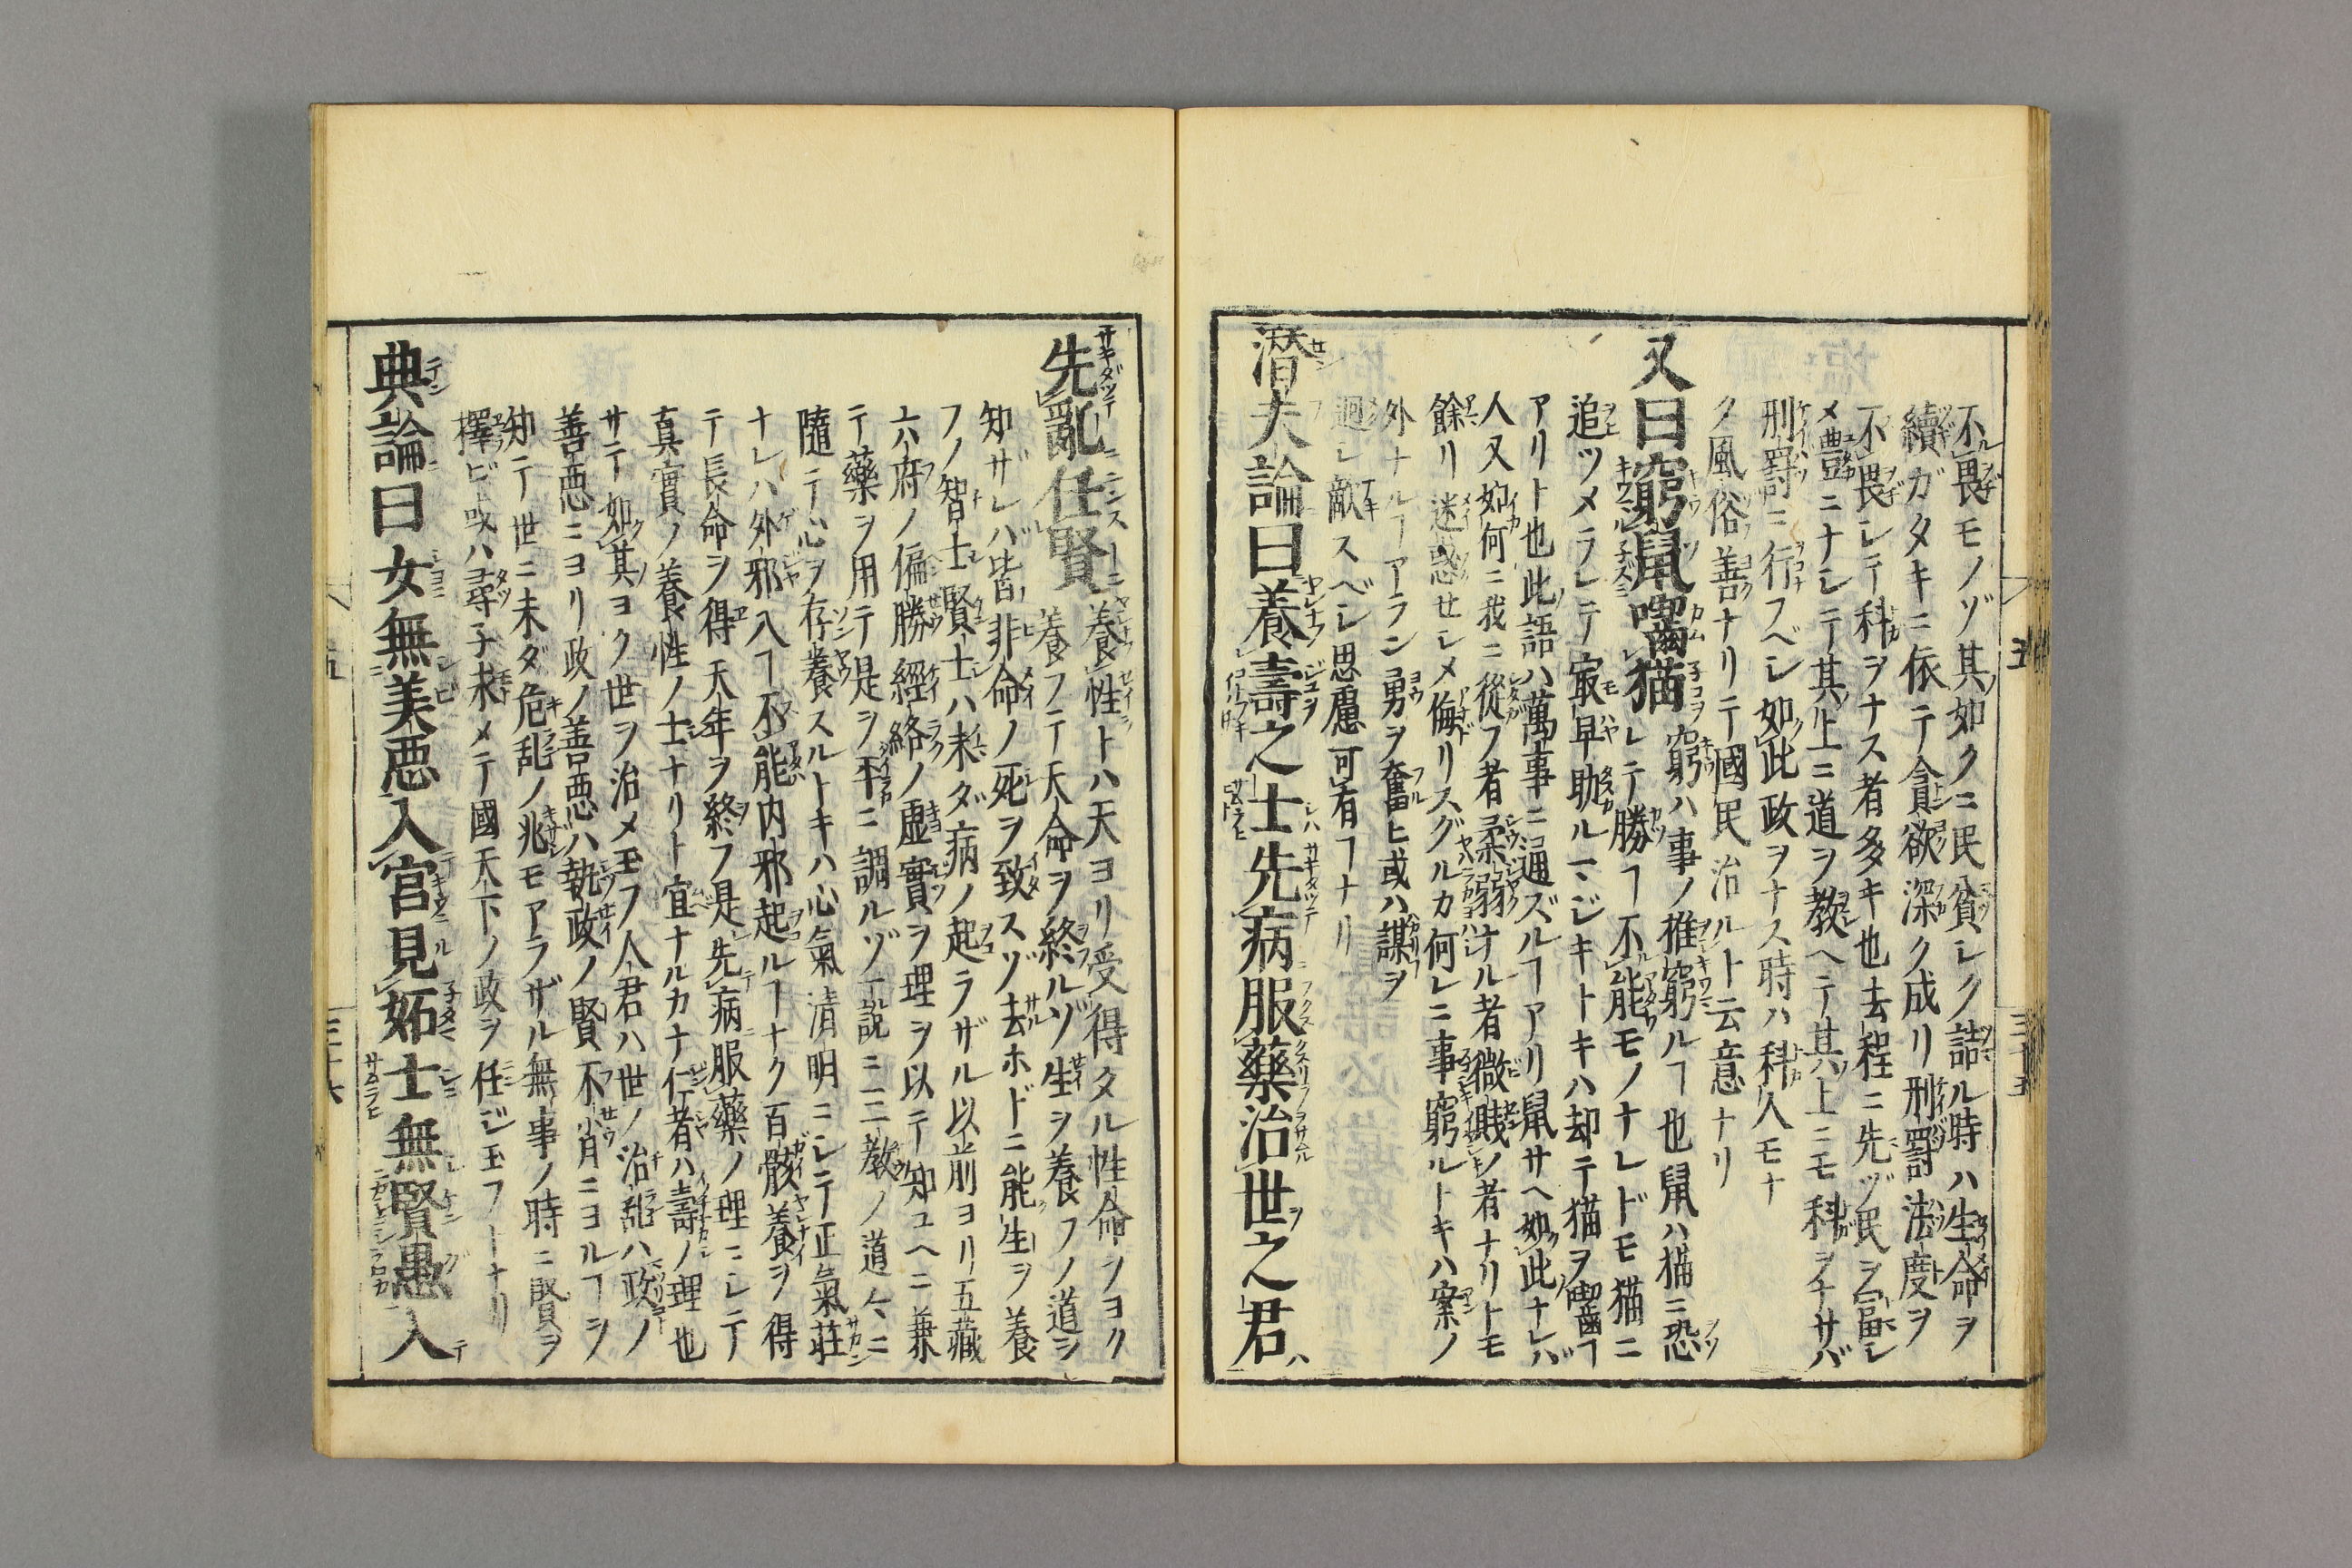 不畏モノゾ其如クニ民貧シク詰ル時ハ生命ヲ
續ガタキニ依テ貪欲深ク成リ刑罰法度ヲ
不畏シテ科ヲナス者多キ也去程ニ先ヅ民ヲ富シ
メ豊ニナシテ其上ニ道ヲ教ヘテ其上ニモ科ヲナサバ
刑罰ニ行フベシ如此政ヲナス時ハ科人モナ
ク風俗善ナリテ國民治ルト云意ナリ
又曰窮鼠囓猫 窮ハ事ノ推窮ルヿ也鼠ハ猫ニ恐
レテ勝ヿ不能モノナレドモ猫ニ
追ツメラレテ最早助ルマジキトキハ却テ猫ヲ囓ヿ
アリト也此語ハ萬事ニ通ズルヿアリ鼠サヘ如此ナレバ
人又如何ニ我ニ從フ者柔弱ナル者微賎ノ者ナリトモ
餘リ迷惑セシメ侮リスグルカ何レニ事窮ルトキハ案ノ
外ナルヿアラン勇ヲ奮ヒ或ハ謀ヲ
廻シ敵スベシ思慮可有ヿナリ
潜夫論曰養壽之士先病服藥治世之君
先亂任賢 養性トハ天ヨリ受得タル性命ヲヨク
養フテ天命ヲ終ルゾ生ヲ養フノ道ヲ
知ザレバ皆非命ノ死ヲ致スゾ去ホドニ能生ヲ養
フノ智士賢士ハ未ダ病ノ起ラザル以前ヨリ五藏
六府ノ偏勝經絡ノ虚實ヲ理ヲ以テ知ユヘニ兼
テ藥ヲ用テ是ヲ平ニ調ルゾ一説ニ二三教ノ道々ニ
隨テ心ヲ存養スルトキハ心氣清明ニシテ正氣莊
ナレハ外邪入ヿ不能内邪起ルヿナク百骸養ヲ得
テ長命ヲ得天年ヲ終フ是先病服藥ノ理ニシテ
真實ノ養性ノ士ナリト宜ナルカナ仁者ハ壽ノ理也
サテ如其ヨク世ヲ治メ玉フ人君ハ世ノ治亂ハ政ノ
善悪ニヨリ政ノ善悪ハ執政ノ賢不肖ニヨルヿヲ
知テ世ニ未ダ危乱ノ兆モアラザル無事ノ時ニ賢ヲ
擇ビ或ハ尋子求メテ國天下ノ政ヲ任ジ玉フトナリ
典論曰女無美悪入宮見妬士無賢愚入